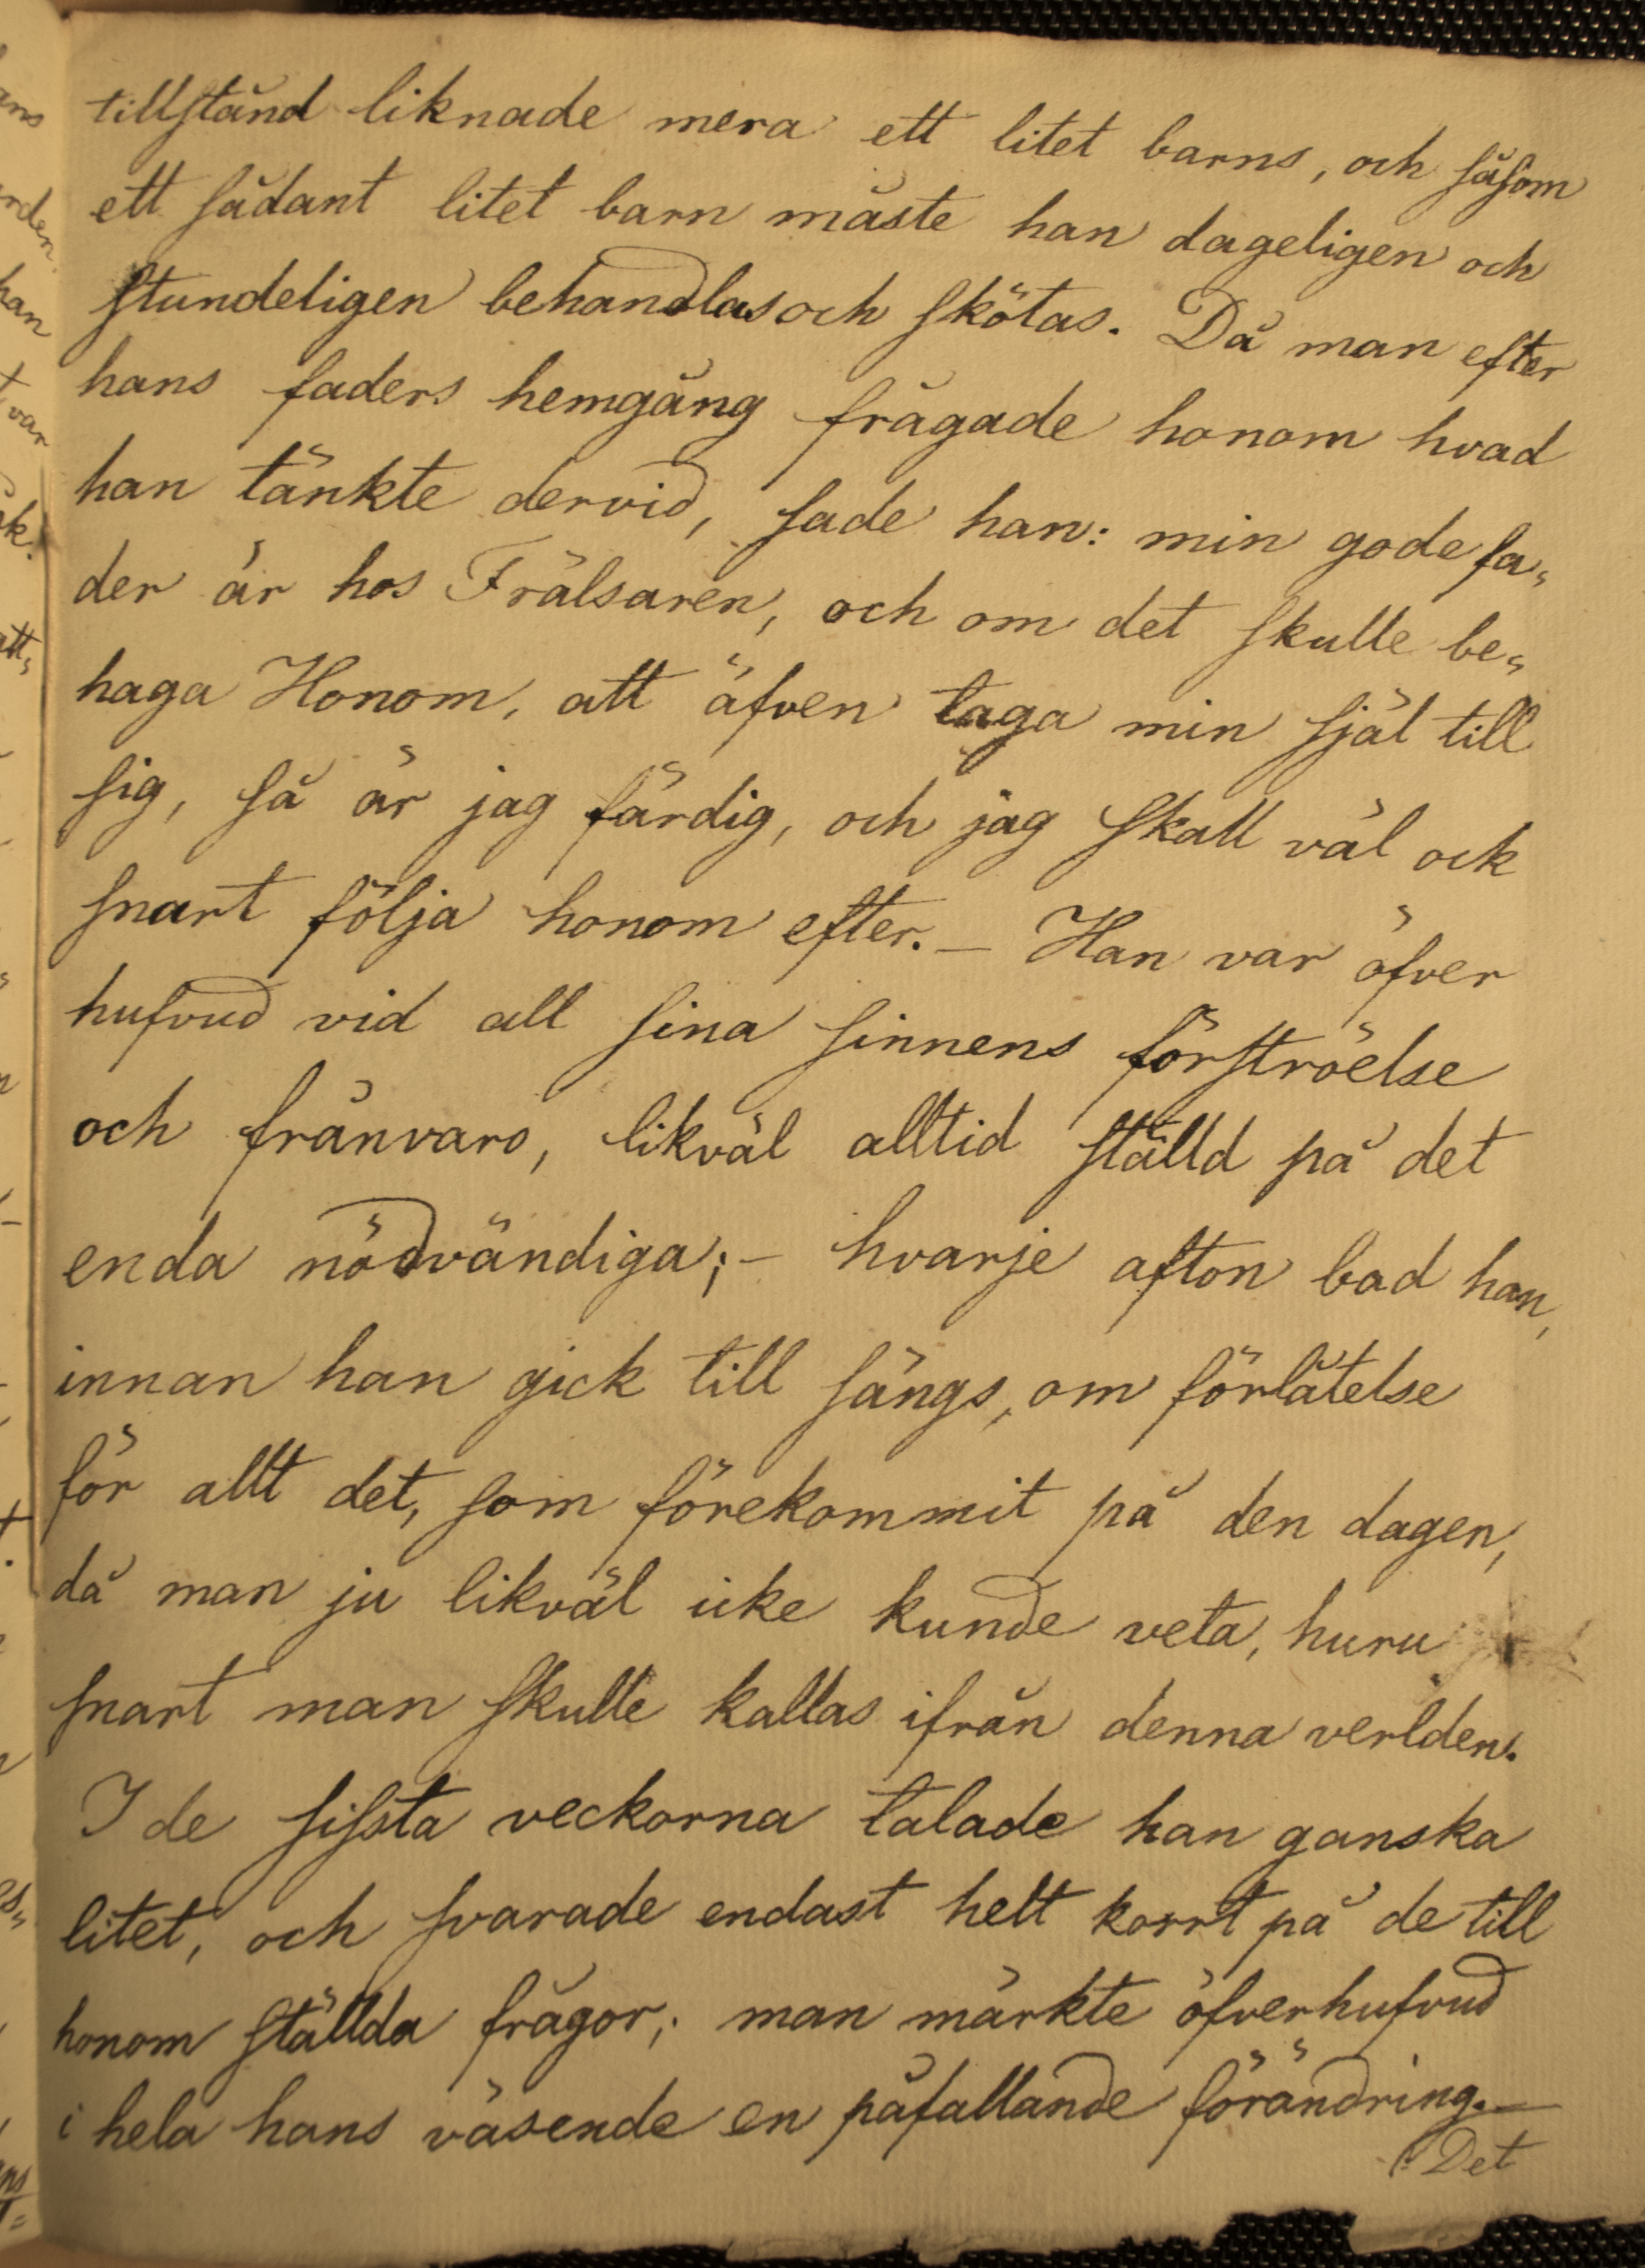 tillstånd liknade mera ett litet barns, och såsom
ett sådant litet barn måste han dageligen och
stundeligen behandlas och skötas. Då man efter
hans faders hemgång frågade honom hvad
han tänkte dervid, sade han: min gode fa„
der är hos Frälsaren, och om det skulle be„
haga Honom, att äfven taga min själ till
sig, så är jag färdig, och jag skall väl ock
snart följa honom efter. – Han var öfver
hufvud vid all sina sinnens förströelse
och frånvaro, likväl alltid ställd på det
enda nödvändiga; – hvarje afton bad han,
innan han gick till sängs, om förlåtelse
för allt det, som förekommit på den dagen,
då man ju likväl icke kunde veta, huru
snart man skulle kallas ifrån denna verlden.
I de sissta veckorna talade han ganska
litet, och svarade endast helt korrt på de till
honom ställda frågor; man märkte öfverhufvud
i hela hans väsende en påfallande förändring. –
Det